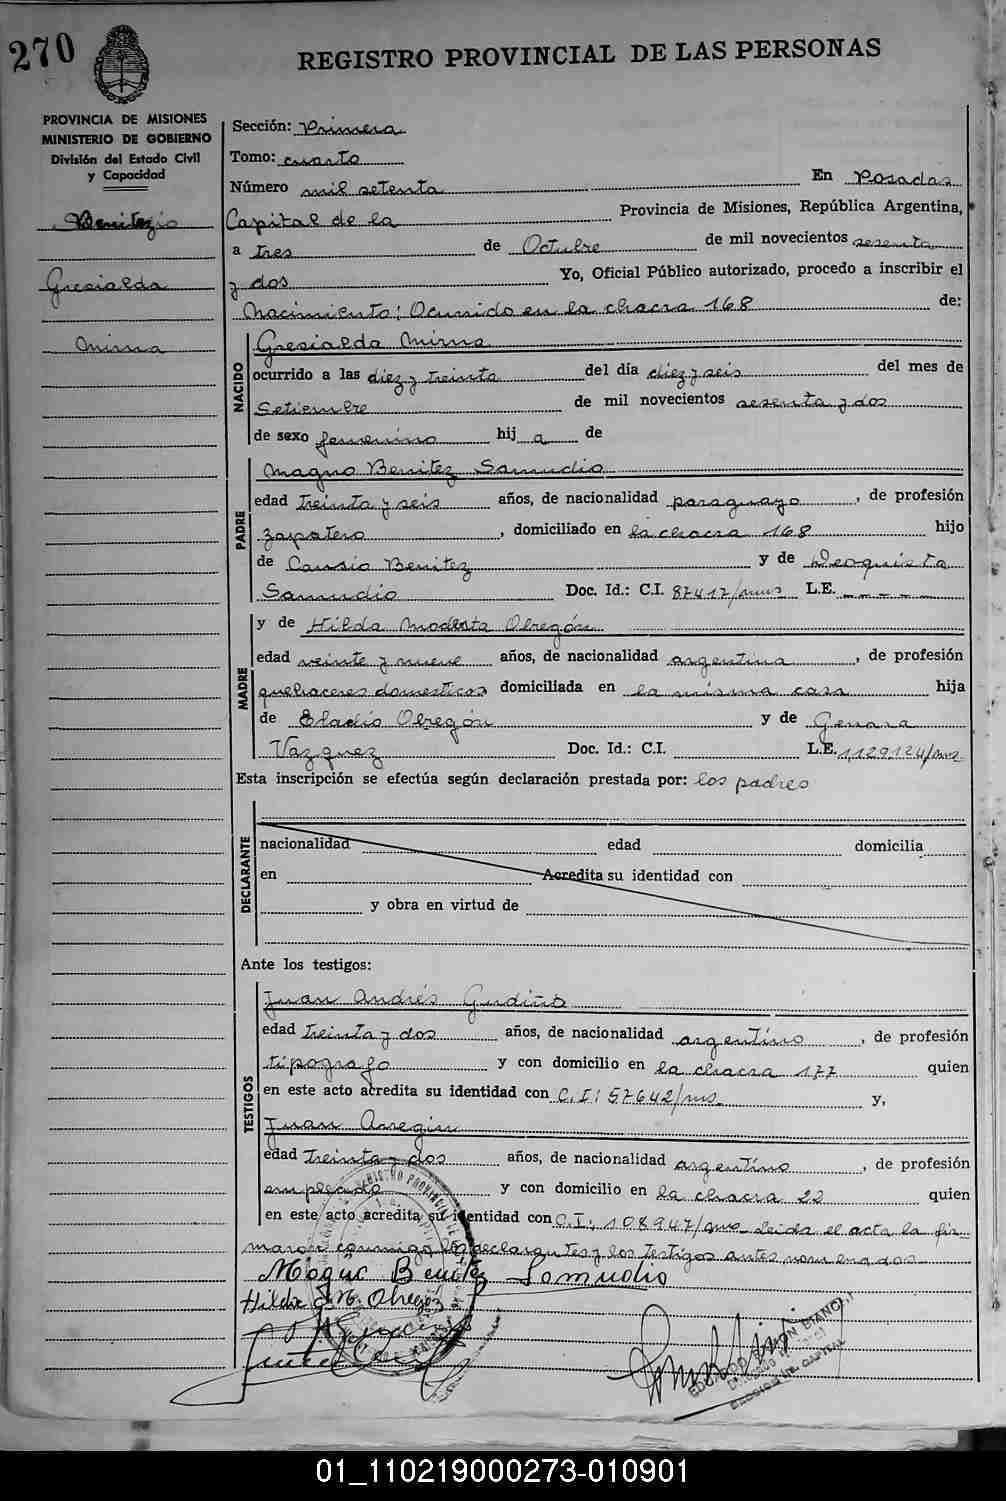 270
REGISTRO PROVINCIAL DE LAS PERSONAS
PROVINCIA DE MISIONES
MINISTERIO DE GOBIERNO
División del Estado Civil
y Capacidad
Benitez
Gresialda
Mirna
Sección: Primera
Tomo: cuarto
Número mil setenta En Posadas
Capital de la Provincia de Misiones, República Argentina,
a tres de Octubre de mil novecientos sesenta
y dos Yo, Oficial Público autorizado, procedo a inscribir el
Nacimiento: Ocurrido en la chacra 168 de:
NACIDO
Gresialda Mirna
ocurrido a las diez y treinta del día diez y seis del mes de
Setiembre de mil novecientos sesenta y dos
de sexo femenino hij a de
PADRE
Magno Benitez Samudio
edad treinta y seis años, de nacionalidad paraguayo, de profesión
zapatero, domiciliado en la chacra 168 hijo
de Cansio Benitez y de Deoquista
Samudio Doc. Id.: C.I. 87417/mns L.E. - - - - -
MADRE
y de Hilda Modesta Obregón
edad veinte y nueve años, de nacionalidad argentina, de profesión
quehaceres domesticos domiciliada en la misma casa hija
de Eladio Obregón y de Genara
Vazquez Doc. Id.: C.I. L.E. 1,129,124/mns
Esta inscripción se efectúa según declaración prestada por: los padres
DECLARANTE
nacionalidad edad domicilia
en Acredita su identidad con
y obra en virtud de
Ante los testigos:
TESTIGOS
Juan Andrés Gudiño
edad treinta y dos años, de nacionalidad argentino, de profesión
tipografo y con domicilio en la chacra 177 quien
en este acto acredita su identidad con C.I: 57642/mns y,
Juan Arregin
edad treinta y dos años, de nacionalidad argentino, de profesión
empleado y con domicilio en la chacra 22 quien
en este acto acredita su identidad con C.I: 108947/mns Leida el acta la fir-
maron conmigo los declarantes y los testigos antes nomenados
Magno Benitez Samudio
Hilda M. Obregon
EDUARDO RAMON BIANCHI
01_110219000273-010901